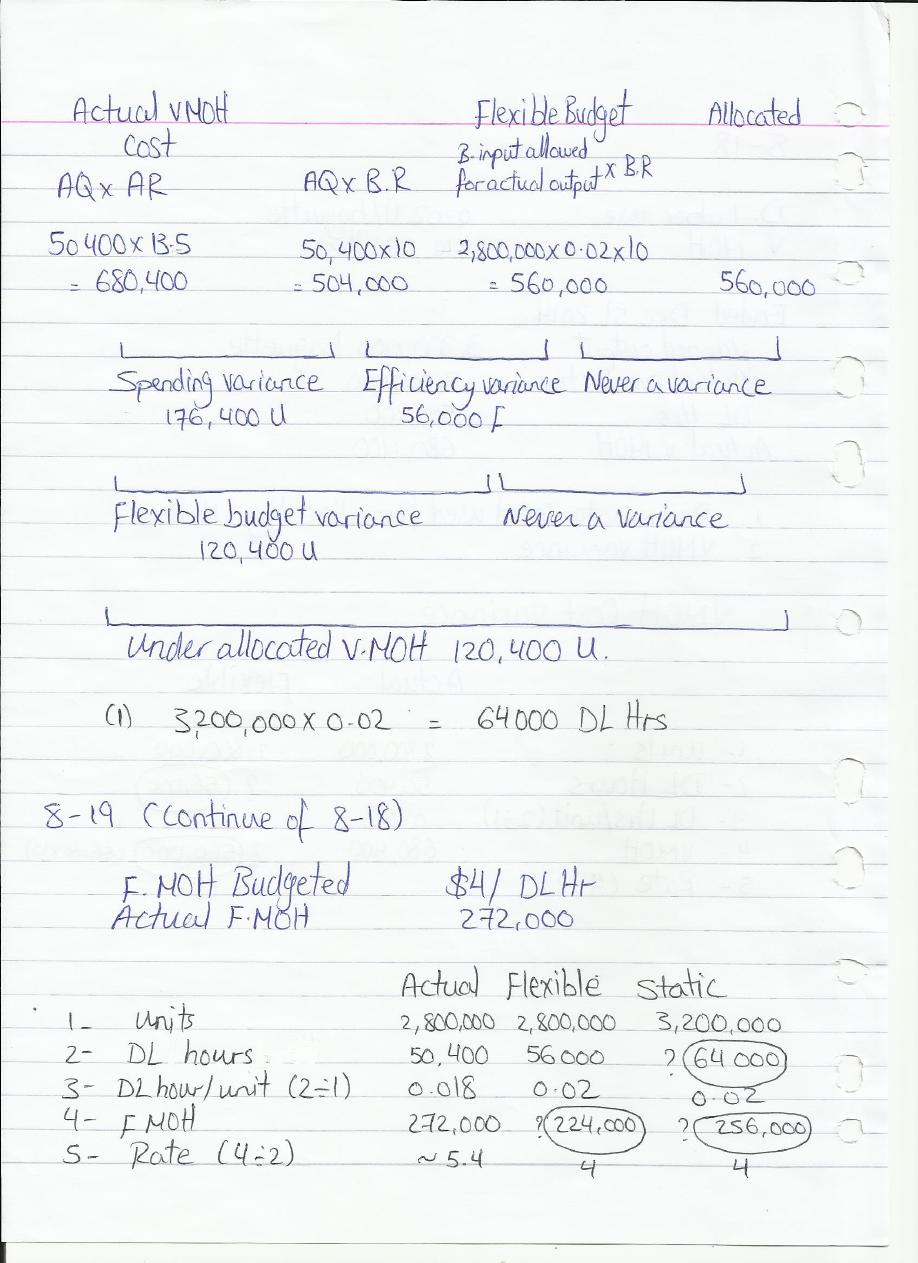 Actual VMOH Flexible Budget Allocated
Cost B. input allowed
AQ x AR AQ x B.R for actual output x B.R
50400 x 13.5 50,400x10 2,800,000x0.02x10
= 680,400 = 504,000 = 560,000 560,000
Spending variance Efficiency variance Never a variance
176,400 U 56,000 F
Flexible budget variance Never a variance
120,400 U
Under allocated V.MOH 120,400 U.
(1) 3,200,000 x 0.02 = 64000 DL Hrs
8-19 (Continue of 8-18)
F. MOH Budgeted $4/ DL Hr
Actual F.MOH 272,000
Actual Flexible Static
1- Units 2,800,000 2,800,000 3,200,000
2- DL hours 50,400 56000 ? 64 000
3- DL hour/unit (2÷1) 0.018 0.02 0.02
4- F MOH 272,000 ? 224,000 ? 256,000
5- Rate (4÷2) ~ 5.4 4 4